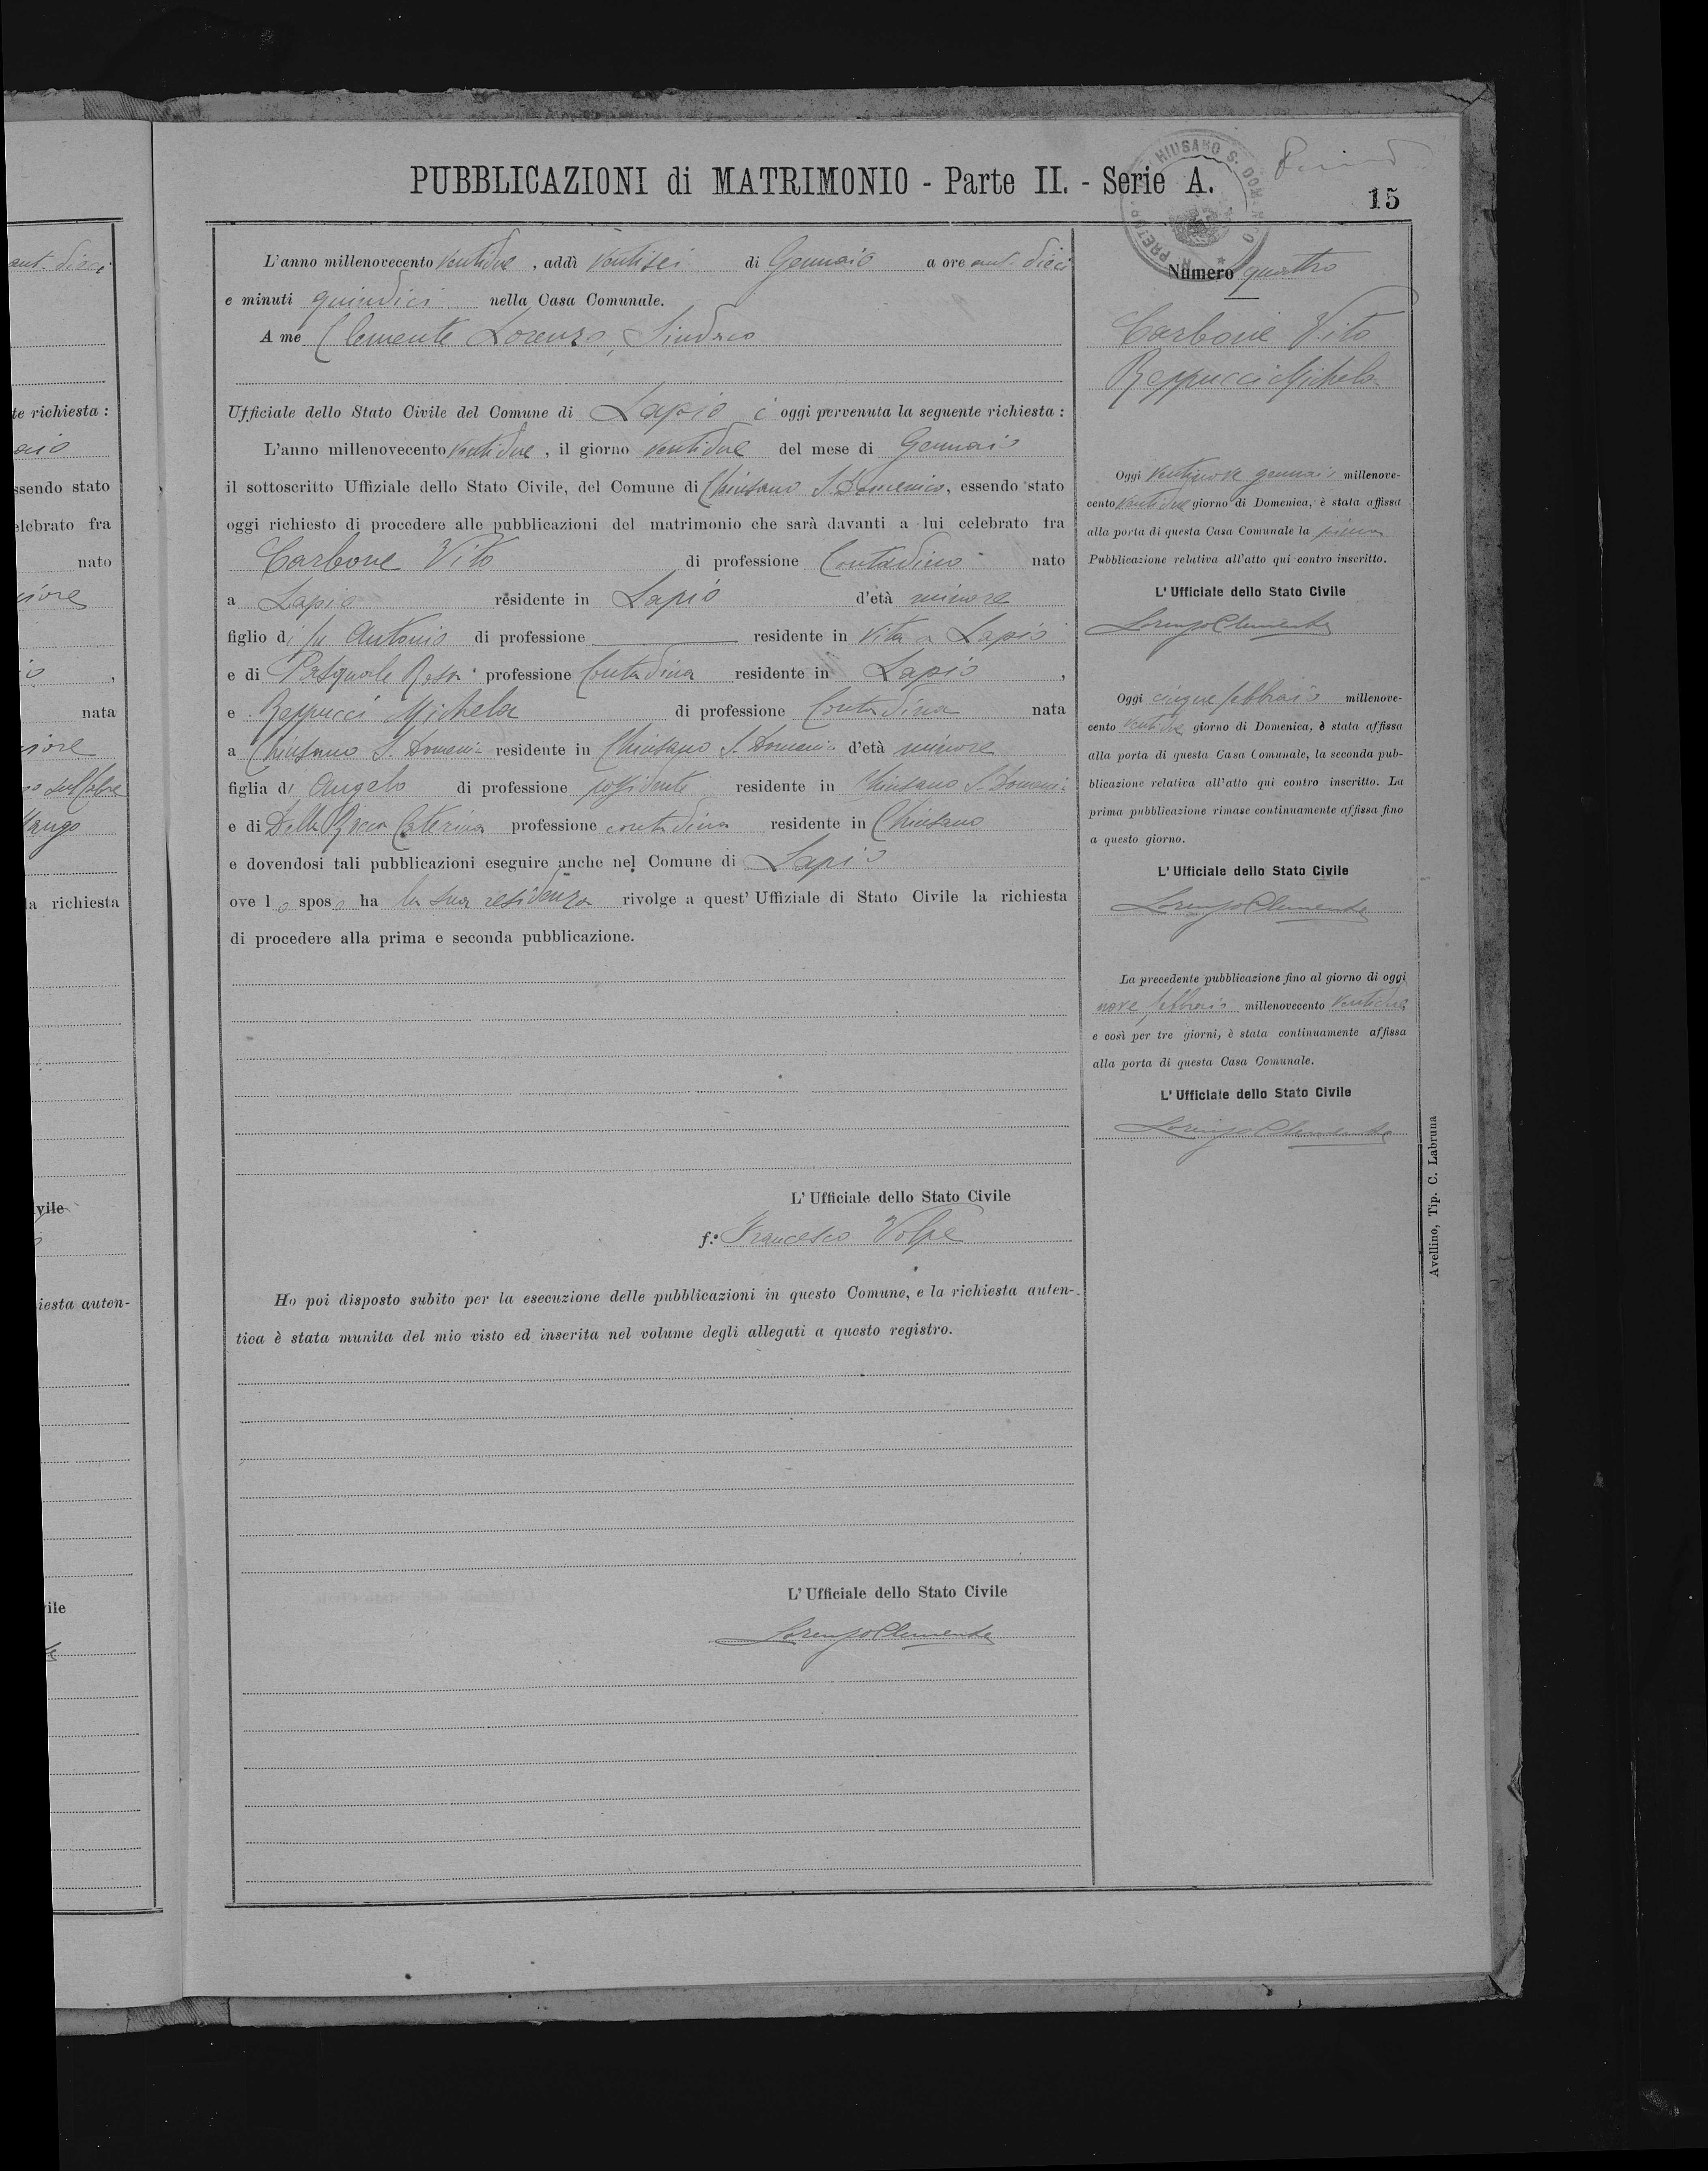 PUBBLICAZIONI di MATRIMONIO - Parte II. - Serie A.
HIUSANO S. DOM
PRETU
15
L'anno millenovecento ventidue, addì ventisei di Gennaio a ore ant. dieci
e minuti quindici nella Casa Comunale.
A me Clemente Lorenzo, Sindaco
Ufficiale dello Stato Civile del Comune di Lapio è oggi pervenuta la seguente richiesta :
L'anno millenovecento ventidue, il giorno ventidue del mese di Gennaio
il sottoscritto Uffiziale dello Stato Civile, del Comune di Chiusano S. Domenico, essendo stato
oggi richiesto di procedere alle pubblicazioni del matrimonio che sarà davanti a lui celebrato fra
Carbone Vito di professione Contadino nato
a Lapio residente in Lapio d'età minore
figlio di fu Antonio di professione residente in vita a Lapio
e di Pasquale Rosa professione Contadina residente in Lapio,
e Reppucci Michela di professione Contadina nata
a Chiusano S. Domenic residente in Chiusano S. Domenic d'età minore
figlia di Angelo di professione possidente residente in Chiusano S. Domeni
e di Della Rocca Caterina professione contadina residente in Chiusano
e dovendosi tali pubblicazioni eseguire anche nel Comune di Lapio
ove lo sposo ha la sua residenza rivolge a quest' Uffiziale di Stato Civile la richiesta
di procedere alla prima e seconda pubblicazione.
L' Ufficiale dello Stato Civile
f.° Francesco Volpe
Ho poi disposto subito per la esecuzione delle pubblicazioni in questo Comune, e la richiesta auten-
tica è stata munita del mio visto ed inserita nel volume degli allegati a questo registro.
L' Ufficiale dello Stato Civile
Lorenzo Clemente
Numero quattro
Carbone Vito
Reppucci Michela
Oggi ventinove gennaio millenove-
cento ventidue giorno di Domenica, è stata affissa
alla porta di questa Casa Comunale la prima
Pubblicazione relativa all'atto qui contro inscritto.
L' Ufficiale dello Stato Civile
Lorenzo Clemente
Oggi cinque febbraio millenove-
cento ventidue giorno di Domenica, è stata affissa
alla porta di questa Casa Comunale, la seconda pub-
blicazione relativa all'atto qui contro inscritto. La
prima pubblicazione rimase continuamente affissa fino
a questo giorno.
L' Ufficiale dello Stato Civile
Lorenzo Clemente
La precedente pubblicazione fino al giorno di oggi
nove febbraio millenovecento ventidue
e così per tre giorni, è stata continuamente affissa
alla porta di questa Casa Comunale.
L' Ufficiale dello Stato Civile
Lorenzo Clemente
Avellino, Tip. C. Labruna
ant. dieci
te richiesta :
aio
ssendo stato
elebrato fra
nato
nata
la richiesta
vile
iesta auten-
vile